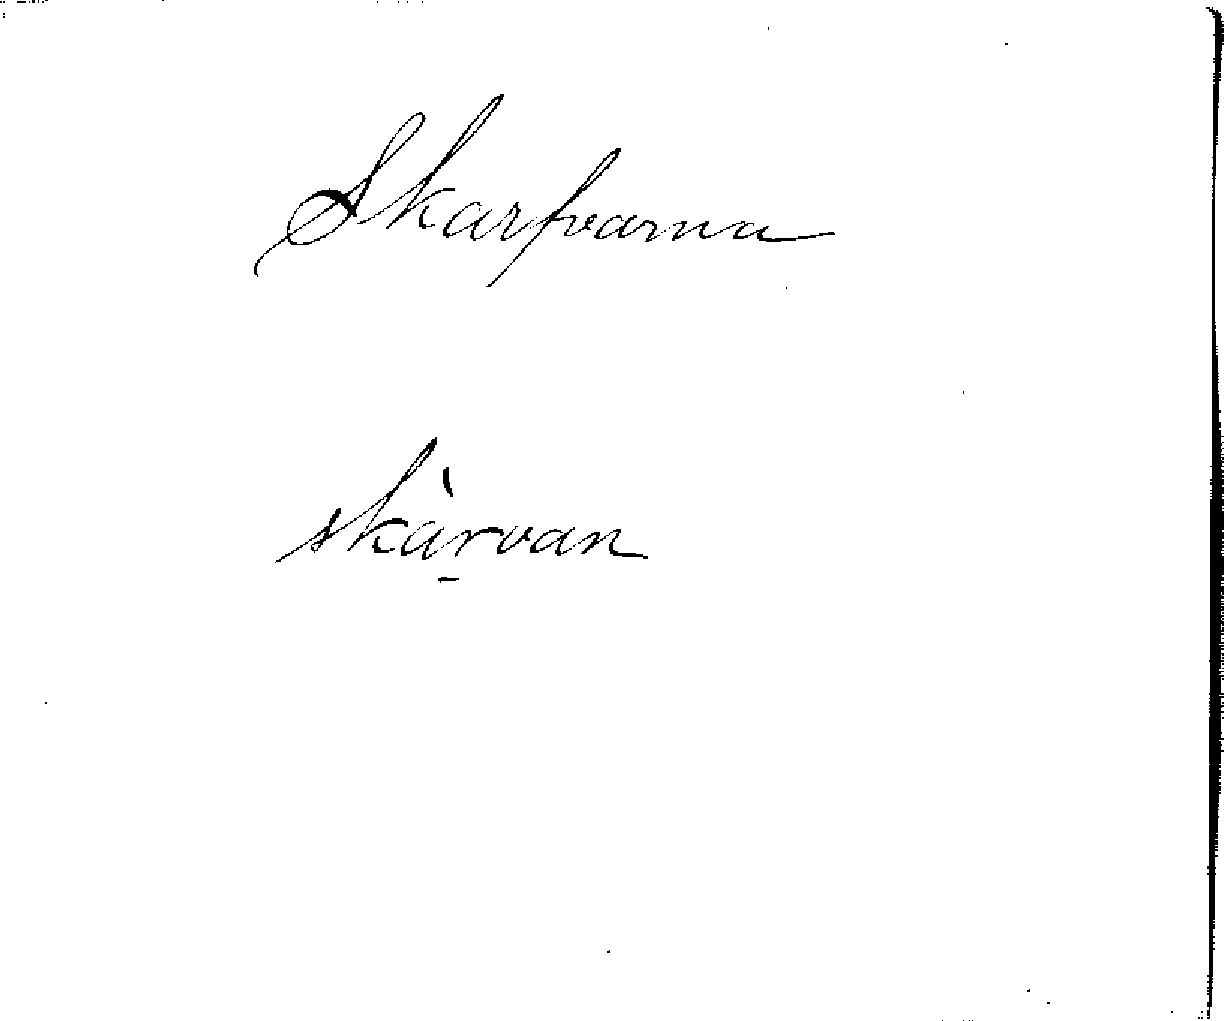 Skarfvarna
skàrvan